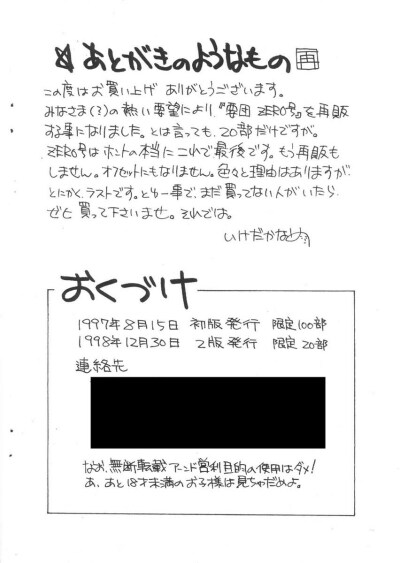 あとがきのようなもの 再
この度はお買い上げ ありがとうございます。
みなさま(?)の熱い要望により、『要囲 ZERO号』を再販
する事になりました。とは言っても、20部だけですが。
ZERO号はホントの本当にこれで最後です。もう再販も
しません。オフセットにもなりません。色々と理由はありますが、
とにかく、ラストです。とゆー事で、まだ買ってない人がいたら、
ぜひ買って下さいませ。それでは。
いけだかなた
おくづけ
1997年8月15日 初版発行 限定100部
1998年12月30日 2版発行 限定20部
連絡先
なお、無断転載アーンド営利目的の使用はダメ!
あ、あと18才未満のお子様は見ちゃだめよ。